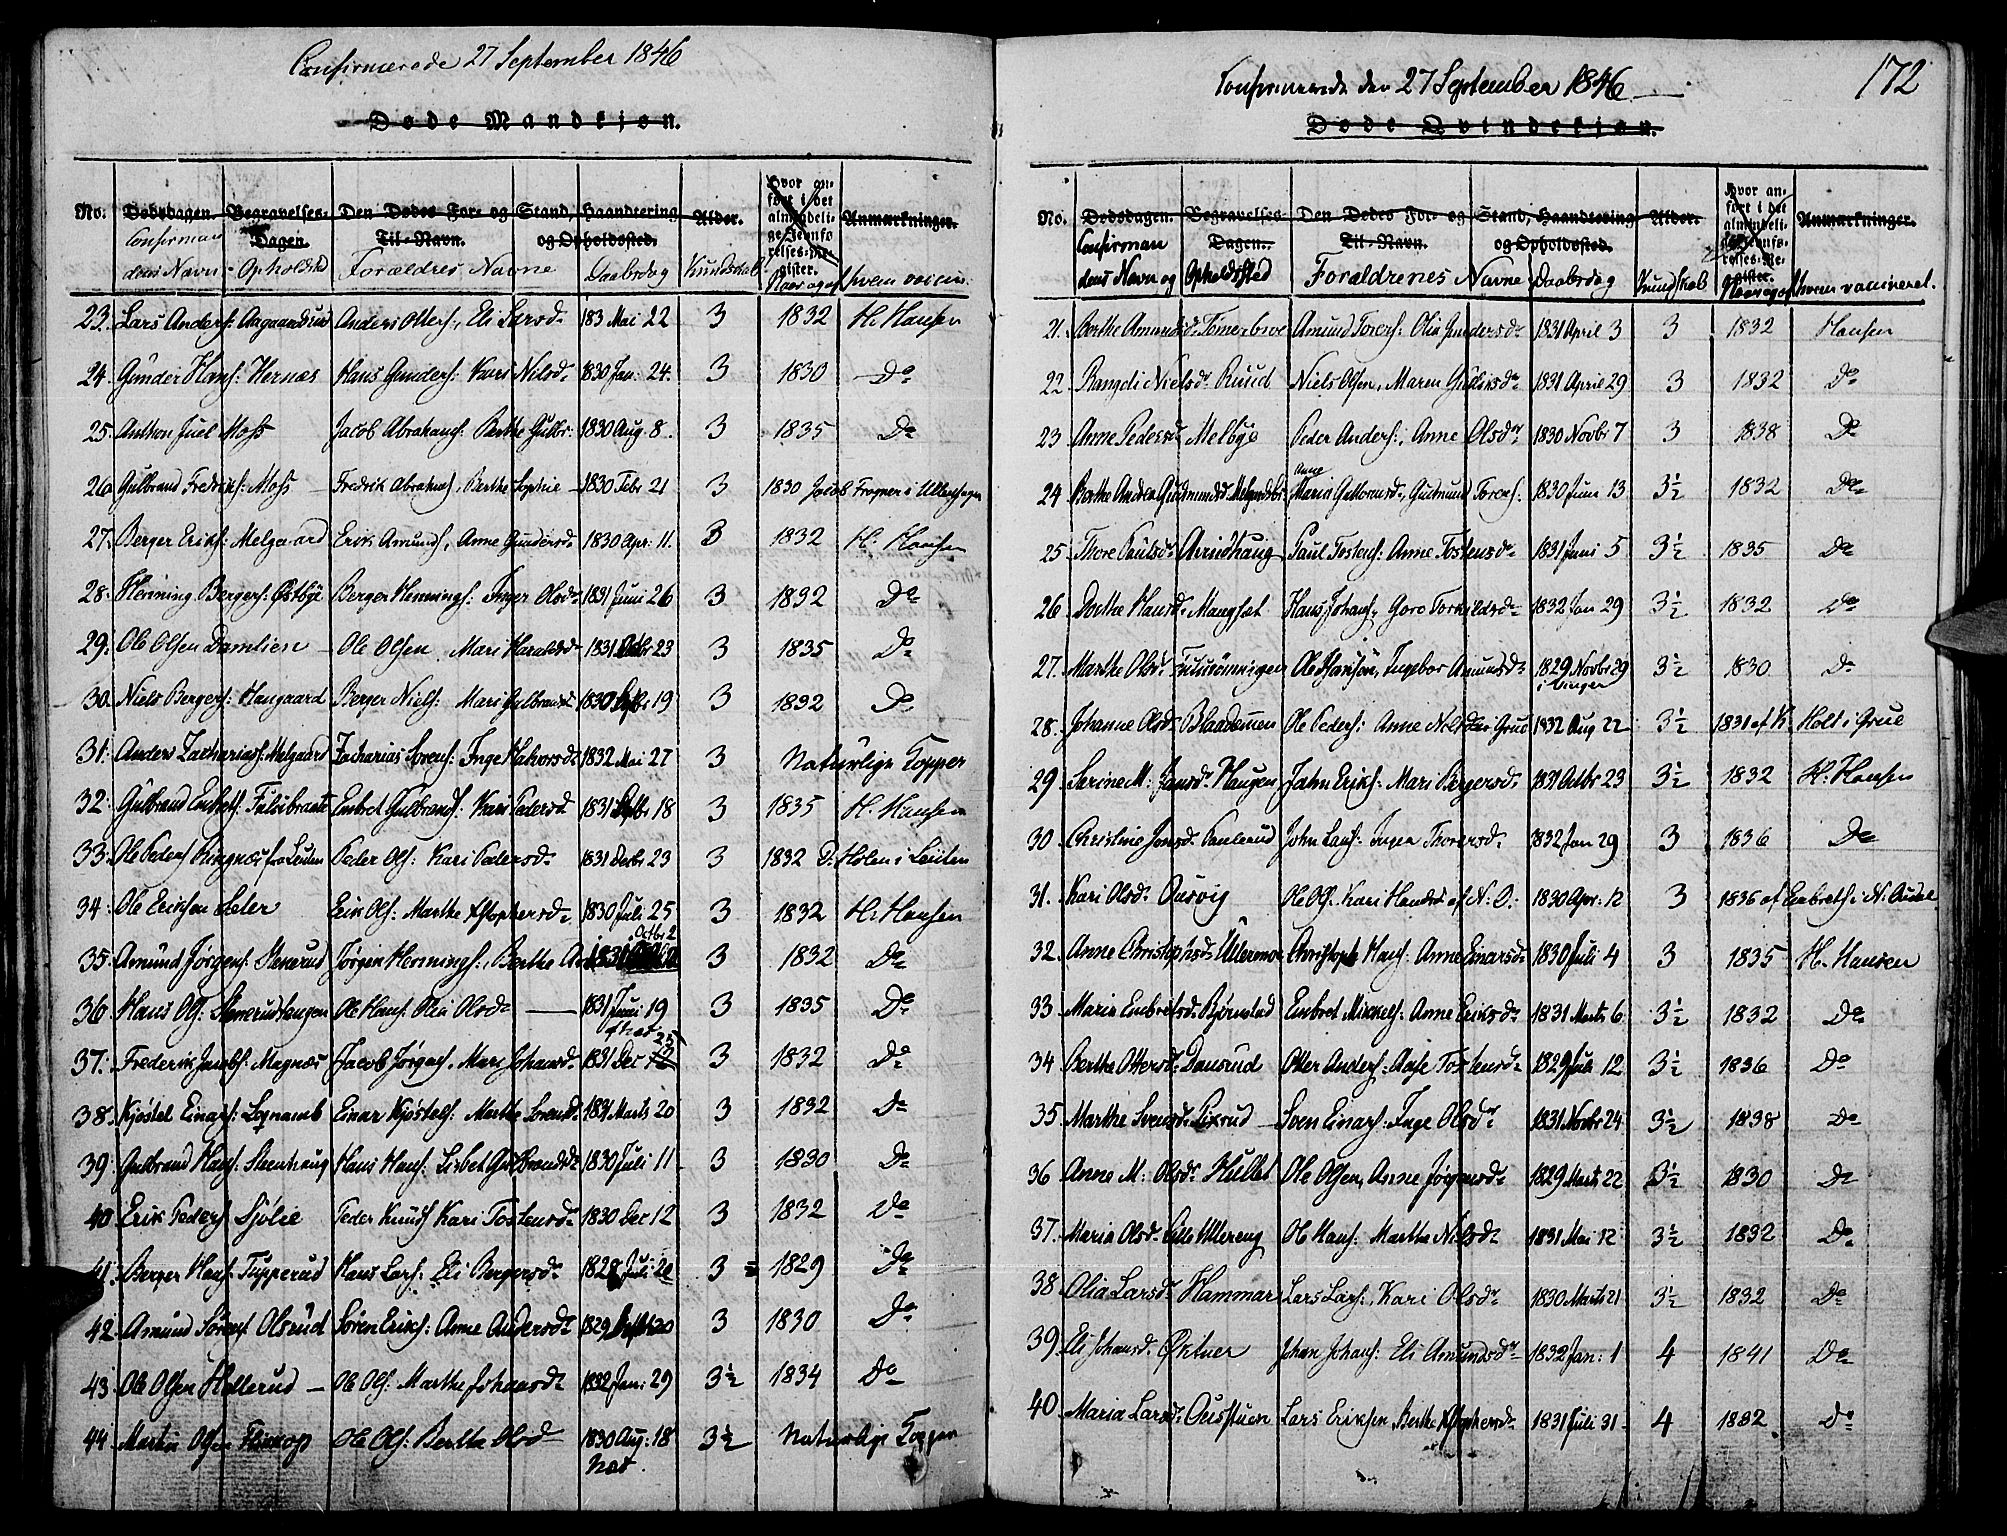 Confirmerede 27 September 1846
Døde Mandkjøn.
No. Dødsdagen. Begravelses-Dagen. Den Dødes For- og Til-Navn. Stand, Haandtering og Opholdssted. Alder. Hvor anført i det almindelige Jevnførelses-Register. Anmærkninger.
Confirmandens Navn - Opholdsted Forældres Navne Daabsdag Kundskab Naar og af hvem vaccin.
23. Lars Anders: Aagaardsud Anders Ottess, Eli Larsd. 183 Mai 22 3 1832 H. Hansen
24. Gunder Hans: Hernæs Hans Gunders: Kari Nilsd. 1830 Jan. 24. 3 1830 Do
25. Anthon Juel Moss Jacob Abrahams: Berthe Gulbr. 1830 Aug. 8. 3 1835 Do
26 Gulbrand Fredriks: Moss Fredrik Abrahams, Berthe Sophie 1830 Febr 21 3 1830 Jacob Frogner i Ullensager
27. Berger Eriks: Melgaard Erik Amunds, Anne Gundersd. 1830 Apr. 11. 3 1832 H. Hansen
28. Henning Bergers: Østbye Berger Hennings: Inger Olsd. 1831 Juni 26 3 1832 Do
29. Ole Olsen Damlien Ole Olsen Mari Haraldsd. 1831 Octbr 23 3 1835 Do
30. Niels Bergers: Haugaard Berger Niels: Mari Gulbrandsd. 1830 Septbr 19 3 1832 Do
31. Anders Zachariass: Melgaard Zacharias Sørens: Inge Halvorsd. 1832 Mai 27 3 Naturlige Kopper
32. Gulbrand Embrets: Fulsibraate Embret Gulbrands: Kari Pedersd 1831 Septbr 18 3 1835 H. Hansen
33. Ole Peders Ringnæs fra Leuten Peder Ols: Kari Pedersd. 1831 Decbr 23 3 1832 D. Holen i Leiten
34. Ole Eriksen Seter Erik Ols: Marthe Kstophersd. 1830 Juli 25 3 1832 H. Hansen
35. Amund Jørgens: Stenerud Jørgen Hennings:, Berthe Octbr 2 3 1832 Do
36 Hans Ols: Stenerudhaugen Ole Hans: Olia Olsd. 1831 Juni 19 3 1835 Do
37. Frederik Jacobs: Magnæs Jacob Jørgens. Mari Johansd. 1831 Dec 12 25 3 1832 Do
38. Kjøstel Einars: Sognaneb Einar Kjøstels: Marthe Sørensd. 1831 Marts 20 3 1832 Do
39. Gulbrand Hans: Steenhaug Hans Hans: Lisbet Gulbrandsd. 1830 Juli 11 3 1830 Do
40 Erik Peders Sjølie Peder Knuds Kari Tostensd. 1830 Dec 12 3 1832 Do
41. Berger Hans: Tupperud Hans Lars: Eli Bergersd. 1828 Juli 20 3 1829 Do
42. Amund Sørens: Olsrud Søren Eriks: Anne Andersd. 1829 Septbr 20 3 1830 Do
43. Ole Olsen Hollerud Ole Ols: Marthe Johansd. 1832 Jan: 29 3½ 1834 Do
44 Martin Olsen Ole Ols: Berthe Olsd 1830 Aug: 18 3½ Naturlige Kopper
172
Confirmerede den 27 September 1846
Døde Qvindekjøn.
No. Dødsdagen. Begravelses-Dagen. Den Dødes For- og Til-Navn. Stand, Haandtering og Opholdssted. Alder. Hvor anført i det almindelige Jevnførelses-Register. Anmærkninger.
Confirmandens Navn og Opholdssted Forældrenes Navne Daabsdag Kundskab Naar og af hvem vaccineret.
21. Berthe Amundsd. Tømerbroe Amund Tores: Olia Gundersd. 1831 April 3 3 1832 Hansen
22. Rangdi Nielsd. Ruud Niels Olsen, Maren Guliksd. 1831 April 29 3 1832 Do
23 Anne Pedersd. Melbye Peder Anders:, Anne Olsd. 1830 Novbr 7 3 1838 Do
24 Berthe Andrea Gudmundsd. Anne Maria Guttormsd., Gudmund Tores: 1830 Juni 13 3½ 1832 Do
25. Thore Paulsd. Arneshaug Paul Tostens: Anne Tostensd. 1831 Juni 5 3½ 1835 Do
26 Dorthe Hansd. Mangset Hans Johans, Goro Torkildsd. 1832 Jan 29 3½ 1832 Do
27. Marthe Olsd. Ole Hansøn, Ingebor Amundsd. 1829 Novbr 29 i Vinger 3½ 1830 Do
28. Johanne Olsd. Blaademen Ole Peders: Anne Nilsd. i Grue 1832 Aug 22 3½ 1831 af K. Holt i Grue
29 Serine M: Jansd. Haugen Jahn Eriks: Mari Bergersd. 1831 Octbr 23 3½ 1832 H. Hansen
30 Christine Jonsd. Paulsrud John Lars: Inger Thoresd. 1832 Jan 29 3 1836 Do
31. Kari Olsd. Aasvig Ole Ols. Kari Hansd. af N: O: 1830 Apr: 12 3 1836 af Embreth i N: Ausdal
32. Anne Christophsd. Ullermoe Christoph Hans: Anne Einarsd. 1830 Juli 4 3 1835 H. Hansen
33. Maria Embretsd. Bjørnstad Embret Mikkels: Anne Eriksd. 1831 Marts 6 3½ 1832 Do
34 Berthe Ottersd. Dansrud Otter Anders: Aase Tostensd. 1829 Juli 12 3½ 1836 Do
35 Marthe Svensd. Sixrud Sven Einars: Inge Olsd. 1831 Novbr 24 3½ 1838 Do
36 Anne M: Olsd. Hullet Ole Olsen, Anne Jørgensd. 1829 Marts 22 3½ 1830 Do
37. Maria Olsd. Lille Ullereng Ole Hans: Marthe Nilsd. 1831 Mai 12 3½ 1832 Do
38. Olia Larsd. Hammar Lars Lars:, Kari Olsd. 1830 Marts 21 3½ 1832 Do
39. Eli Johansd. Øktner Johan Johans: Eli Amundsd. 1832 Jan: 1 4 1841 Do
40 Maria Larsd. Ousstuen Lars Eriksen Berthe Kstophersd. 1831 Juli 31 4 1832 Do